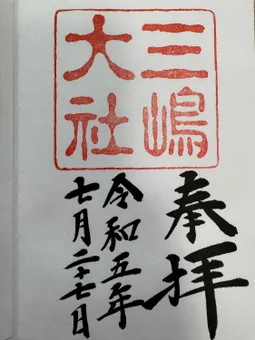 三嶋
大社
奉拝
令和五年
七月二十七日